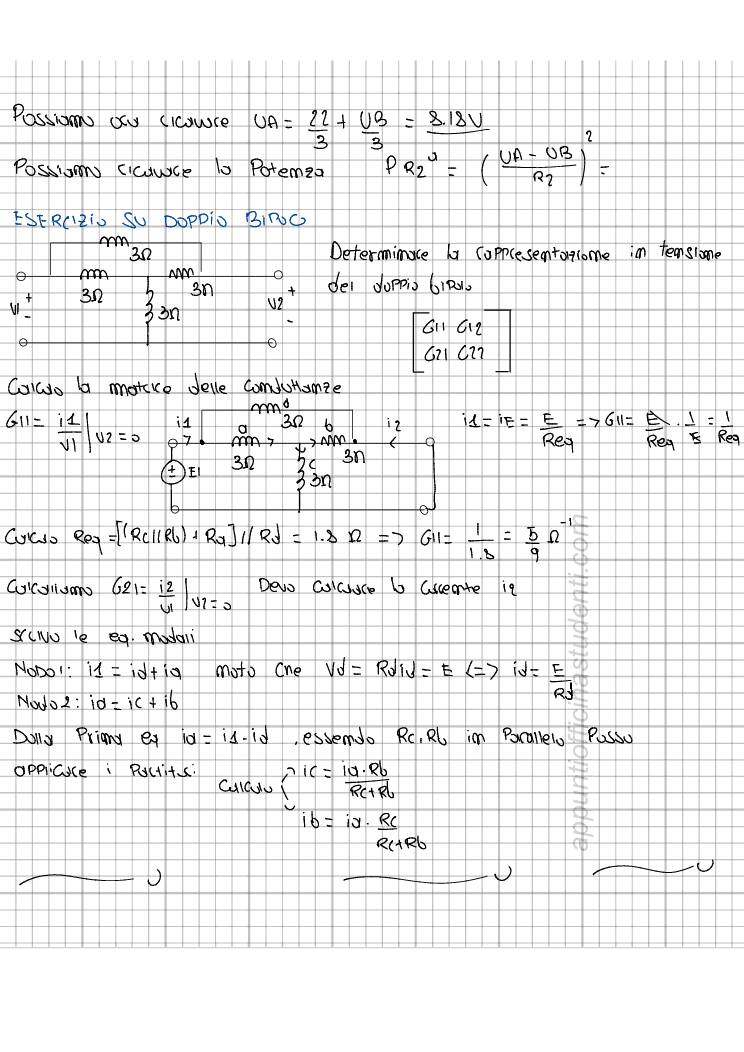 Possiamo ora ricavare UA = 22/3 + UB/3 = 8.18V
Possiamo ricavare la Potenza P R2 = ( (UA - UB) / R2 )² =
ESERCIZIO SU DOPPIO BIPOLO
3Ω
3Ω 3Ω
V1 + - 3Ω V2 + -
Determinare la rappresentazione in tensione
del doppio bipolo
[G11 G12
G21 G22]
Calcolo la matrice delle Conduttanze
G11 = i1/V1 | V2=0
i1 d 3Ω i2
a b
3Ω 3Ω
E1 c 3Ω
i1 = iE = E/Req => G11 = E/Req · 1/E = 1/Req
Calcolo Req = [(Rc//Rb) + Ra] // Rd = 1.8 Ω => G11 = 1/1.8 = 5/9 Ω⁻¹
Calcoliamo G21 = i2/V1 | V2=0 Devo calcolare la corrente i2
scrivo le eq. nodali
Nodo 1: i1 = id + ia noto che Vd = Rd id = E <=> id = E/Rd
Nodo 2: ia = ic + ib
Dalla Prima eq ia = i1 - id, essendo Rc, Rb in Parallelo Posso
applicare i Partitori:
Calcolo ic = ia · Rb / (Rc + Rb)
ib = ia · Rc / (Rc + Rb)
appuntiofficinastudenti.com